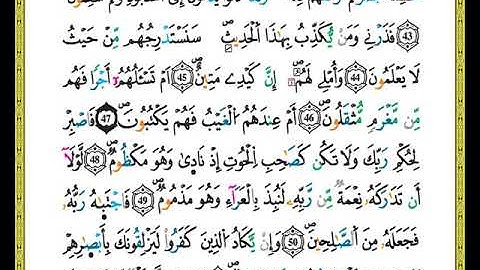 ﴿43﴾ فَذَرْنِي وَمَن يُكَذِّبُ بِهَٰذَا الْحَدِيثِ ۖ سَنَسْتَدْرِجُهُم مِّنْ حَيْثُ
لَا يَعْلَمُونَ ﴿44﴾ وَأُمْلِي لَهُمْ ۚ إِنَّ كَيْدِي مَتِينٌ ﴿45﴾ أَمْ تَسْـَٔلُهُمْ أَجْرًا فَهُم
مِّن مَّغْرَمٍ مُّثْقَلُونَ ﴿46﴾ أَمْ عِندَهُمُ الْغَيْبُ فَهُمْ يَكْتُبُونَ ﴿47﴾ فَاصْبِرْ
لِحُكْمِ رَبِّكَ وَلَا تَكُن كَصَاحِبِ الْحُوتِ إِذْ نَادَىٰ وَهُوَ مَكْظُومٌ ﴿48﴾ لَّوْلَا
أَن تَدَارَكَهُ نِعْمَةٌ مِّن رَّبِّهِ لَنُبِذَ بِالْعَرَاءِ وَهُوَ مَذْمُومٌ ﴿49﴾ فَاجْتَبَاهُ رَبُّهُ
فَجَعَلَهُ مِنَ الصَّالِحِينَ ﴿50﴾ وَإِن يَكَادُ الَّذِينَ كَفَرُوا لَيُزْلِقُونَكَ بِأَبْصَارِهِمْ